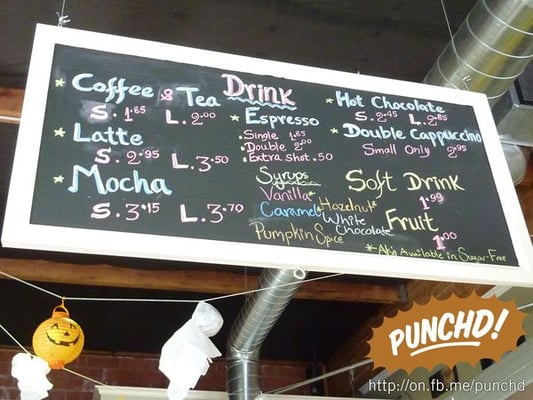 Drink
* Coffee & Tea
S. 1.85 L. 2.00
* Latte
S. 2.95 L. 3.50
* Mocha
S. 3.15 L. 3.70
* Espresso
• Single 1.85
• Double 2.00
• Extra shot .50
Syrups
Vanilla*
Caramel* Hazelnut*
White Chocolate
Pumpkin Spice
* Hot Chocolate
S. 2.45 L. 2.85
* Double Cappuccino
Small Only 2.95
Soft Drink
1.99
Fruit
1.00
* Also Available in Sugar-Free
PUNCHD!
http://on.fb.me/punchd